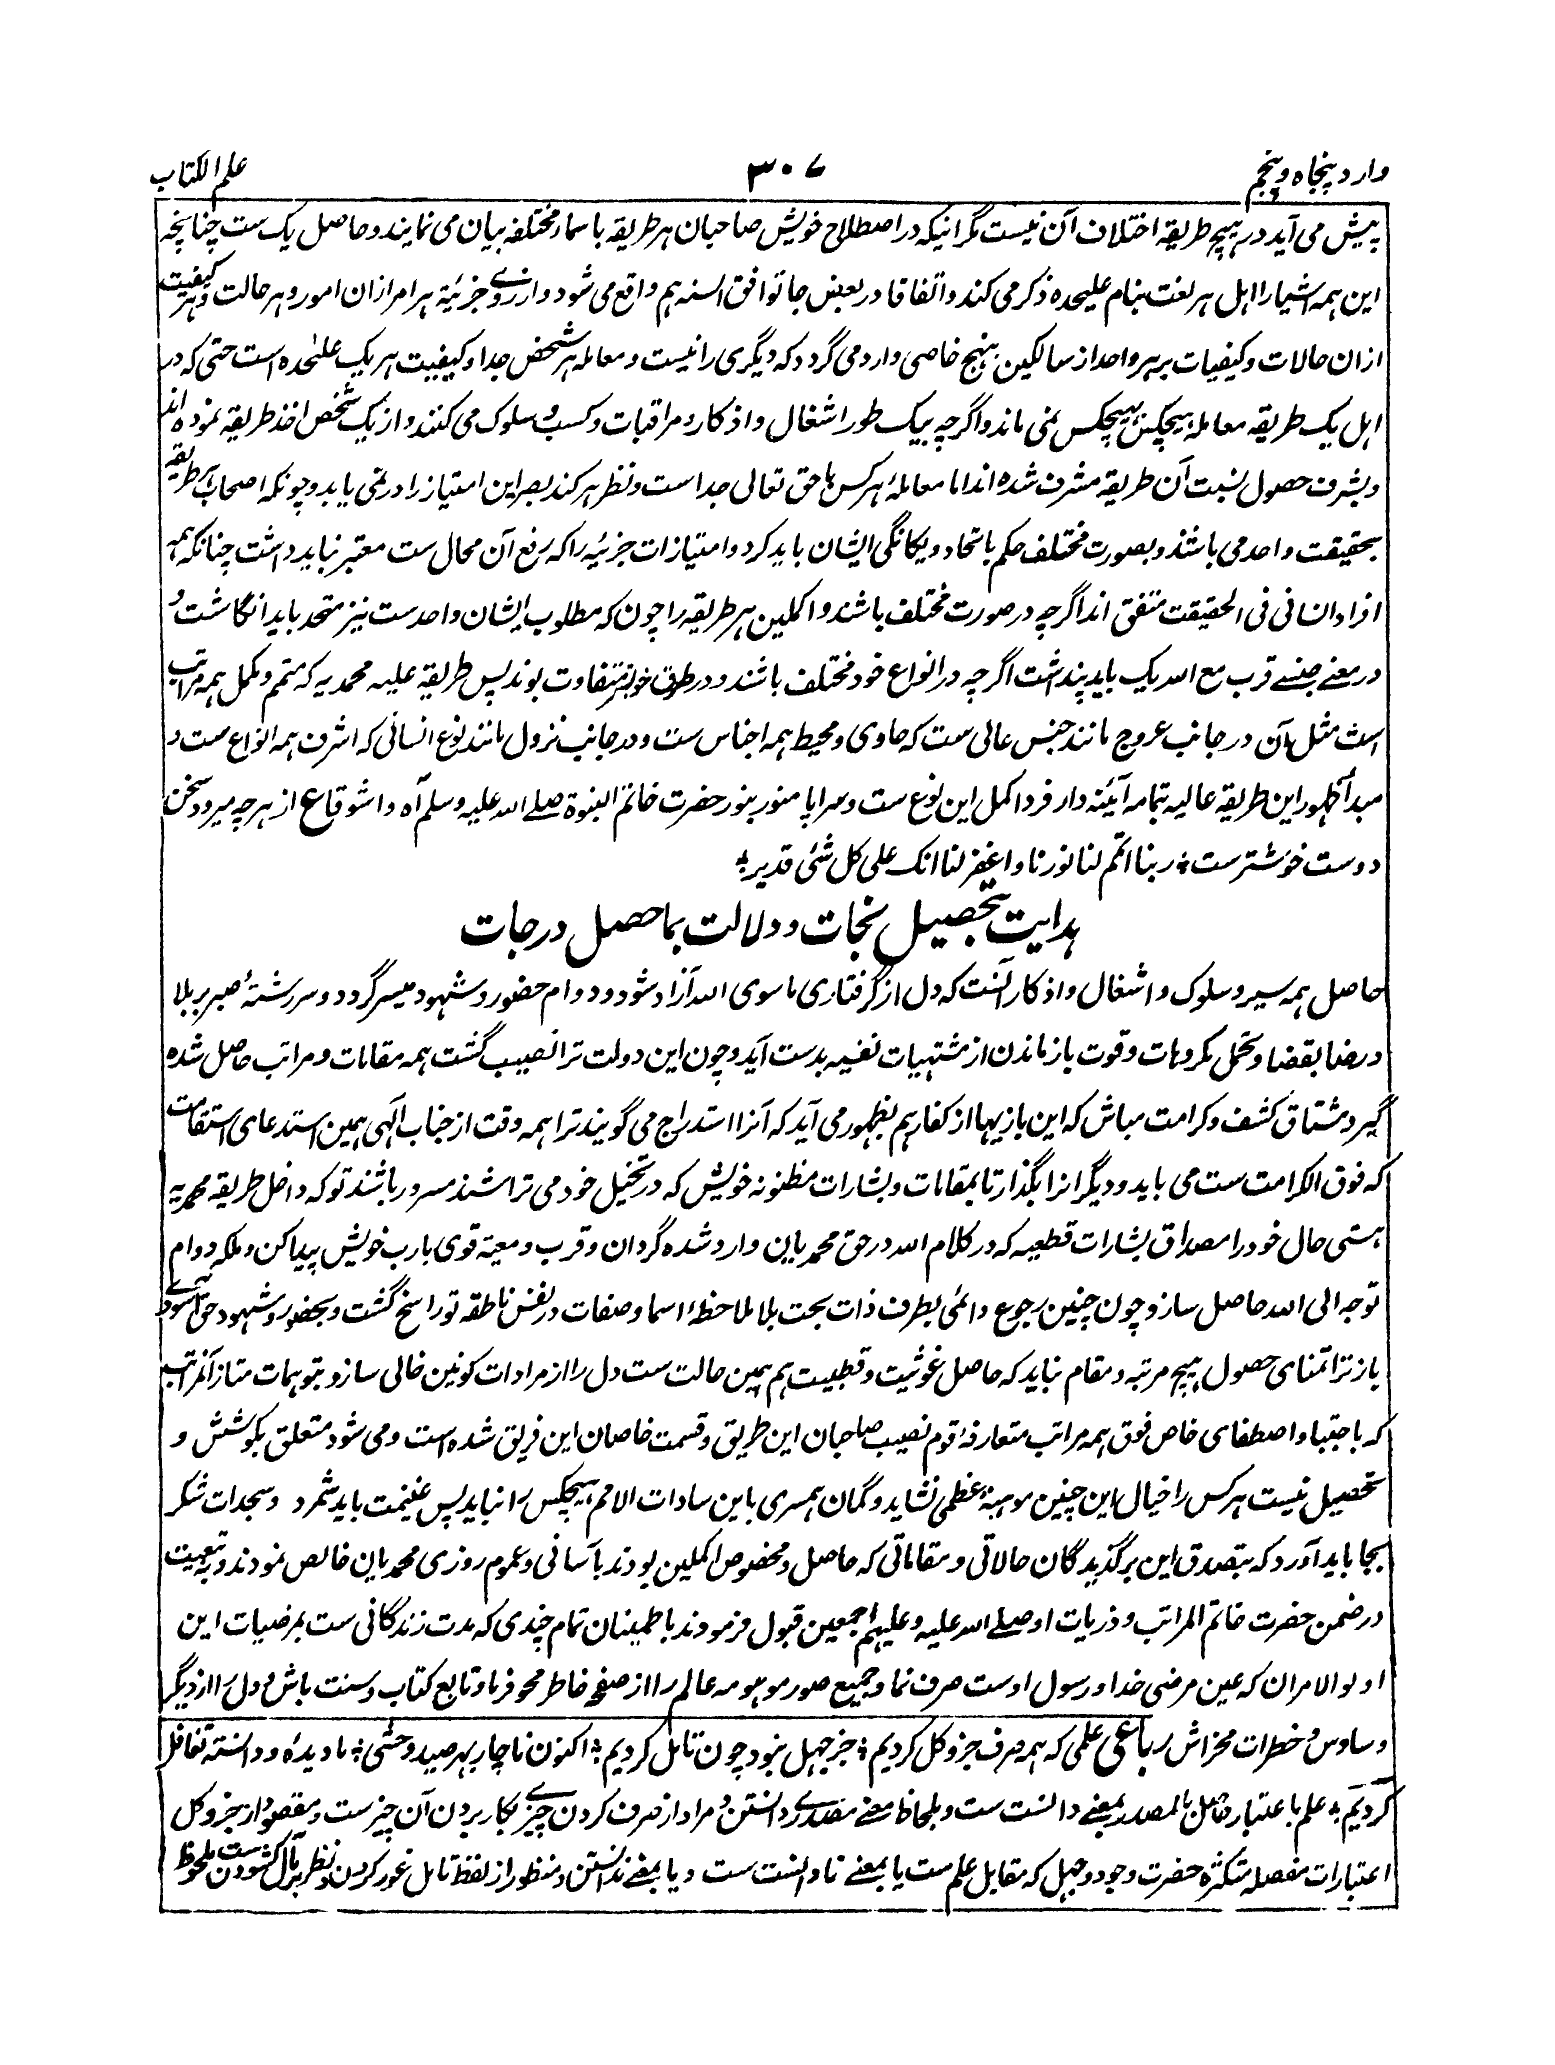 وارد پنجاه و پنجم
۳۰۷
علم الکتاب
پیش می آید در هیچ طریقه اختلاف آن نیست مگر اینکه در اصطلاح خویش صاحبان هر طریقه با سماء مختلفه بیان می نمایند و حاصل یک ست چنانچه
این همه اشیا را اهل هر لغت بنام علیحده ذکر می کند و اتفاقا در بعض جا توافق السنه هم واقع می شود و از روے جزئیة هر امر ازان امور و هر حالت و هر کیفیت
ازان حالات و کیفیات بر هر واحد از سالکین بنهج خاصی وارد می گردد که دیگری را نیست و معامله هر شخص جدا و کیفیت هر یک علیٰحده است حتی که در
اهل یک طریقه معاملۂ هیچکس بهیچکس نمی ماند و اگر چه بیک طور اشغال و اذکار و مراقبات و کسب و سلوک می کنند و از یک شخص اخذ طریقه نموده اند
و بشرف حصول نسبت آن طریقه مشرف شده اند اما معاملۂ هر کس با حق تعالی جداست و نظر هر کند بصر این امتیاز را در نمی یابد و چونکه اصحاب هر طریقه
بحقیقت واحد می باشند و بصورت مختلف حکم باتحاد و یگانگی ایشان باید کرد و امتیازات جزئیه را که رفع آن محال ست معتبر نباید داشت چنانکه همه
افراد انسانی فی الحقیقت متفق اند اگر چه در صورت مختلف باشند و اکملین هر طریقه را چون که مطلوب ایشان واحد ست نیز متحد باید انگاشت و
در معنے جنسے قرب مع الله یک باید پنداشت اگر چه در انواع خود مختلف باشند و در طرق خویش متفاوت بوند پس طریقه علیه محمدیه که متمم و مکمل همه مراتب
است مثل آن در جانب عروج مانند جنس عالی ست که حاوی و محیط همه اجناس ست و در جانب نزول مانند نوع انسانی که اشرف همه انواع ست و
مبدأ ظهور این طریقه عالیه بتمامه آئینه دار فرد اکمل این نوع ست و سراپا منور بنور حضرت خاتم النبوة صلے الله علیه وسلم آه واشوقاع از هر چه میرود سخن
دوست خوشترست ÷ ربنا اتمم لنا نورنا واغفر لنا انک علی کل شئ قدیر ÷
هدایت تحصیل نجات و دلالت بما حصل درجات
حاصل همه سیر و سلوک و اشغال و اذکار آنست که دل از گرفتاری ما سوی الله آزاد شود و دوام حضور و شهود میسر گردد و سررشتۂ صبر بر بلا
و رضا بقضا و تحمل مکروهات و قوت باز ماندن از مشتهیات نفسیه بدست آید و چون این دولت ترا نصیب گشت همه مقامات و مراتب حاصل شده
گیر و مشتاق کشف و کرامت مباش که این بازیها از کفار هم بظهور می آید که آنرا استدراج می گویند ترا همه وقت از جناب الٰهی همین استدعای استقامت
که فوق الکرامت ست می باید و دیگرانرا بگذار تا بمقامات و بشارات مظنونه خویش که در تخیل خود می تراشند مسرور باشند تو که داخل طریقه محمدیه
هستی حال خود را مصداق بشارات قطعیه که در کلام الله در حق محمدیان وارد شده گردان و قرب و معیة قوی با رب خویش پیدا کن و ملکه دوام
توجه الی الله حاصل ساز و چون چنین رجوع دائمی بطرف ذات بحت بلا ملاحظۂ اسما و صفات در نفس ناطقه تو راسخ گشت و بحضور و شهود حق آسودے
باز ترا تمنای حصول هیچ مرتبه و مقام نباید که حاصل غوثیت و قطبیت هم همین حالت ست دل را از مرادات کونین خالی ساز و بتوهمات متاز آنمراتب
که باجتبا و اصطفای خاص فوق همه مراتب متعارفۂ قوم نصیب صاحبان این طریق و قسمت خاصان این فریق شده است و می شود متعلق بکوشش و
تحصیل نیست هر کس را خیال این چنین موهبۂ عظمی نشاید و گمان همسری باین سادات الامم هیچکس را نباید پس غنیمت باید شمرد و سجدات شکر
بجا باید آورد که بتصدق این برگزیدگان حالاتی و مقاماتی که حاصل و مخصوص اکملین بودند بآسانی و عموم روزی محمدیان خالص نمودند و بتبعیت
در ضمن حضرت خاتم المراتب و ذریات او صلے الله علیه و علیهم اجمعین قبول فرمودند باطمینان تمام چندی که مدت زندگانی ست بمرضیات این
اولو الامران که عین مرضی خدا و رسول اوست صرف نما و جمیع صور موهومه عالم را از صفحۂ خاطر محو فرما و تابع کتاب و سنت باش و دل را از دیگر
وساوس و خطرات مخراش رباعی علمی که همه صرف جز و کل کردیم ÷ جز جهل نبود چون تامل کردیم ÷ اکنون ناچار بهر صید وحشی ÷ نادیده و دانسته تغافل
کردیم ÷ علم باعتبار حاصل بالمصدر بمعنے دانست ست و بلحاظ معنے مصدرے دانستن و مراد از صرف کردن چیزے بکار بردن آن چیز ست و مقصود از جز و کل
اعتبارات مفصله متکثره حضرت وجود و جهل که مقابل علم ست یا بمعنے نادانست ست و یا بمعنے ندانستن و منظور از لفظ تامل غور کردن و نظر بر مآل کشودن ست ملحوظ